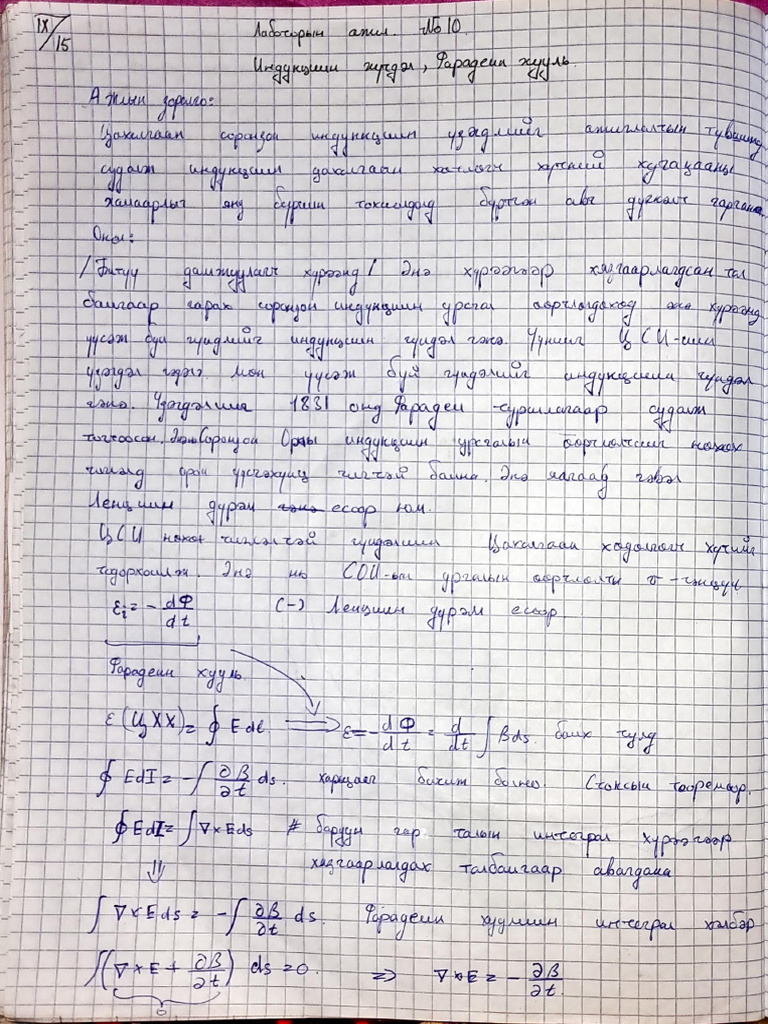 IX/15
Лаботорын ажил. №10.
Индукциин хүчдэл, Фарадеин хууль.
Ажлын зорилго:
Цахилгаан соронзон индукциин үзэгдлийг ажиглалтын түвшинд
судалж индукциин цахилгаан хөдлөгч хүчний хугацаанц
хамаарлыг янз бүрийн тохиолдолд бүртгэн авч дүгнэлт гаргана.
Онол:
/Битүү дамжуулагч хүрээнд/ Энэ хүрээгээр хязгаарлагдсан тал
байгаар гарах соронзон индукциин урсгал өөрчлөгдөхөд энэ хүрээнд
үүсэж буй гүйдлийг индукциин гүйдэл гэнэ. Үүнийг ЦСИ-ийн
үзэгдэл гэдэг. Мөн үүсэж буй гүйдэлийг индукциин гүйдэл
гэнэ. Үзэгдэлийг 1831 онд Фарадеи туршилагаар судалж
тогтоосон. Энэ Соронзон Орны индукциин урсгалын өөрчлөлтийг нөхөх
чиглэлд орон үүсгэхүйц чигтэй байна. Энэ яагаад гэвэл
Ленциин дүрэм ёсоор юм.
ЦСИ нөхөн чиглэлтэй гүйдэлийн Цахилгаан хөдөлгөгч хүчийг
тодорхойлж. Энэ нь СОИ-ын урсгалын өөрчлөлтт -тэнцүү
εi = - dФ/dt (-) Ленциин дүрэм ёсоор
Фарадеин хууль
ε(ЦХХ) = ∮ E dl ⇒ ε = - dФ/dt = d/dt ∫ B ds. байх тулд
∮ E dl = - ∫ ∂B/∂t ds. харьцааг бичиж болно. Стоксын теоремоор.
∮ E dl = ∫ ∇×E ds # баруун гар талын интеграл хүрээгээр
⇓ хязгаарлагдах талбайгаар авагдана
∫ ∇×E ds = - ∫ ∂B/∂t ds. Фарадеин хуулиин интеграл хэлбэр
∫(∇×E + ∂B/∂t) ds = 0. ⇒ ∇×E = - ∂B/∂t.
0